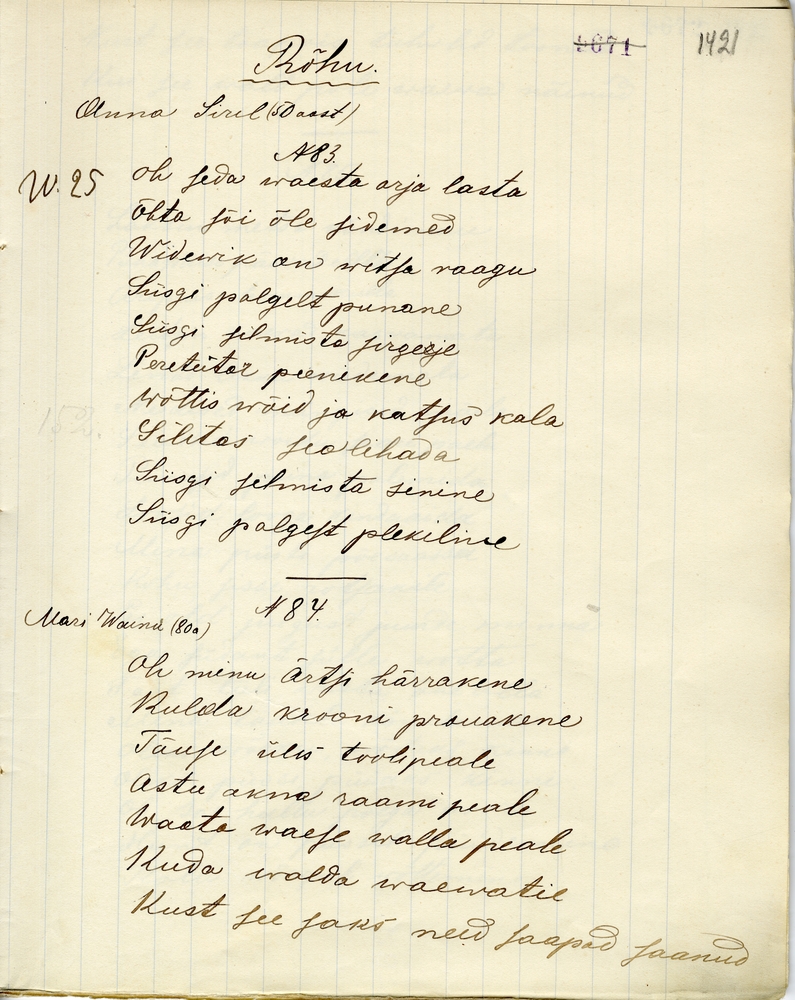 9671 1421
Rõhu.
Anna Sirel (50 aast)
N 83.
W. 25
Oh seda waesta orja lasta
Õhta söi õle sidemed
Widewik on witsa raagu
Siisgi palgelt punane
Siisgi silmista sirgerje
Peretütar peenikene
Wõttis wõid ja katsus kala
Silitas sealihada
Siisgi silmista sinine
Siisgi palgest plekiline
N 84.
Mari Waind (80a)
Oh minu Ärtsi härrakene
Kulda krooni prouakene
Tõuse üles toolipeale
Astu akna raami peale
Waata waese walla peale
Kuda walda waewatie
Kust see saks neid saapad saanud
152.